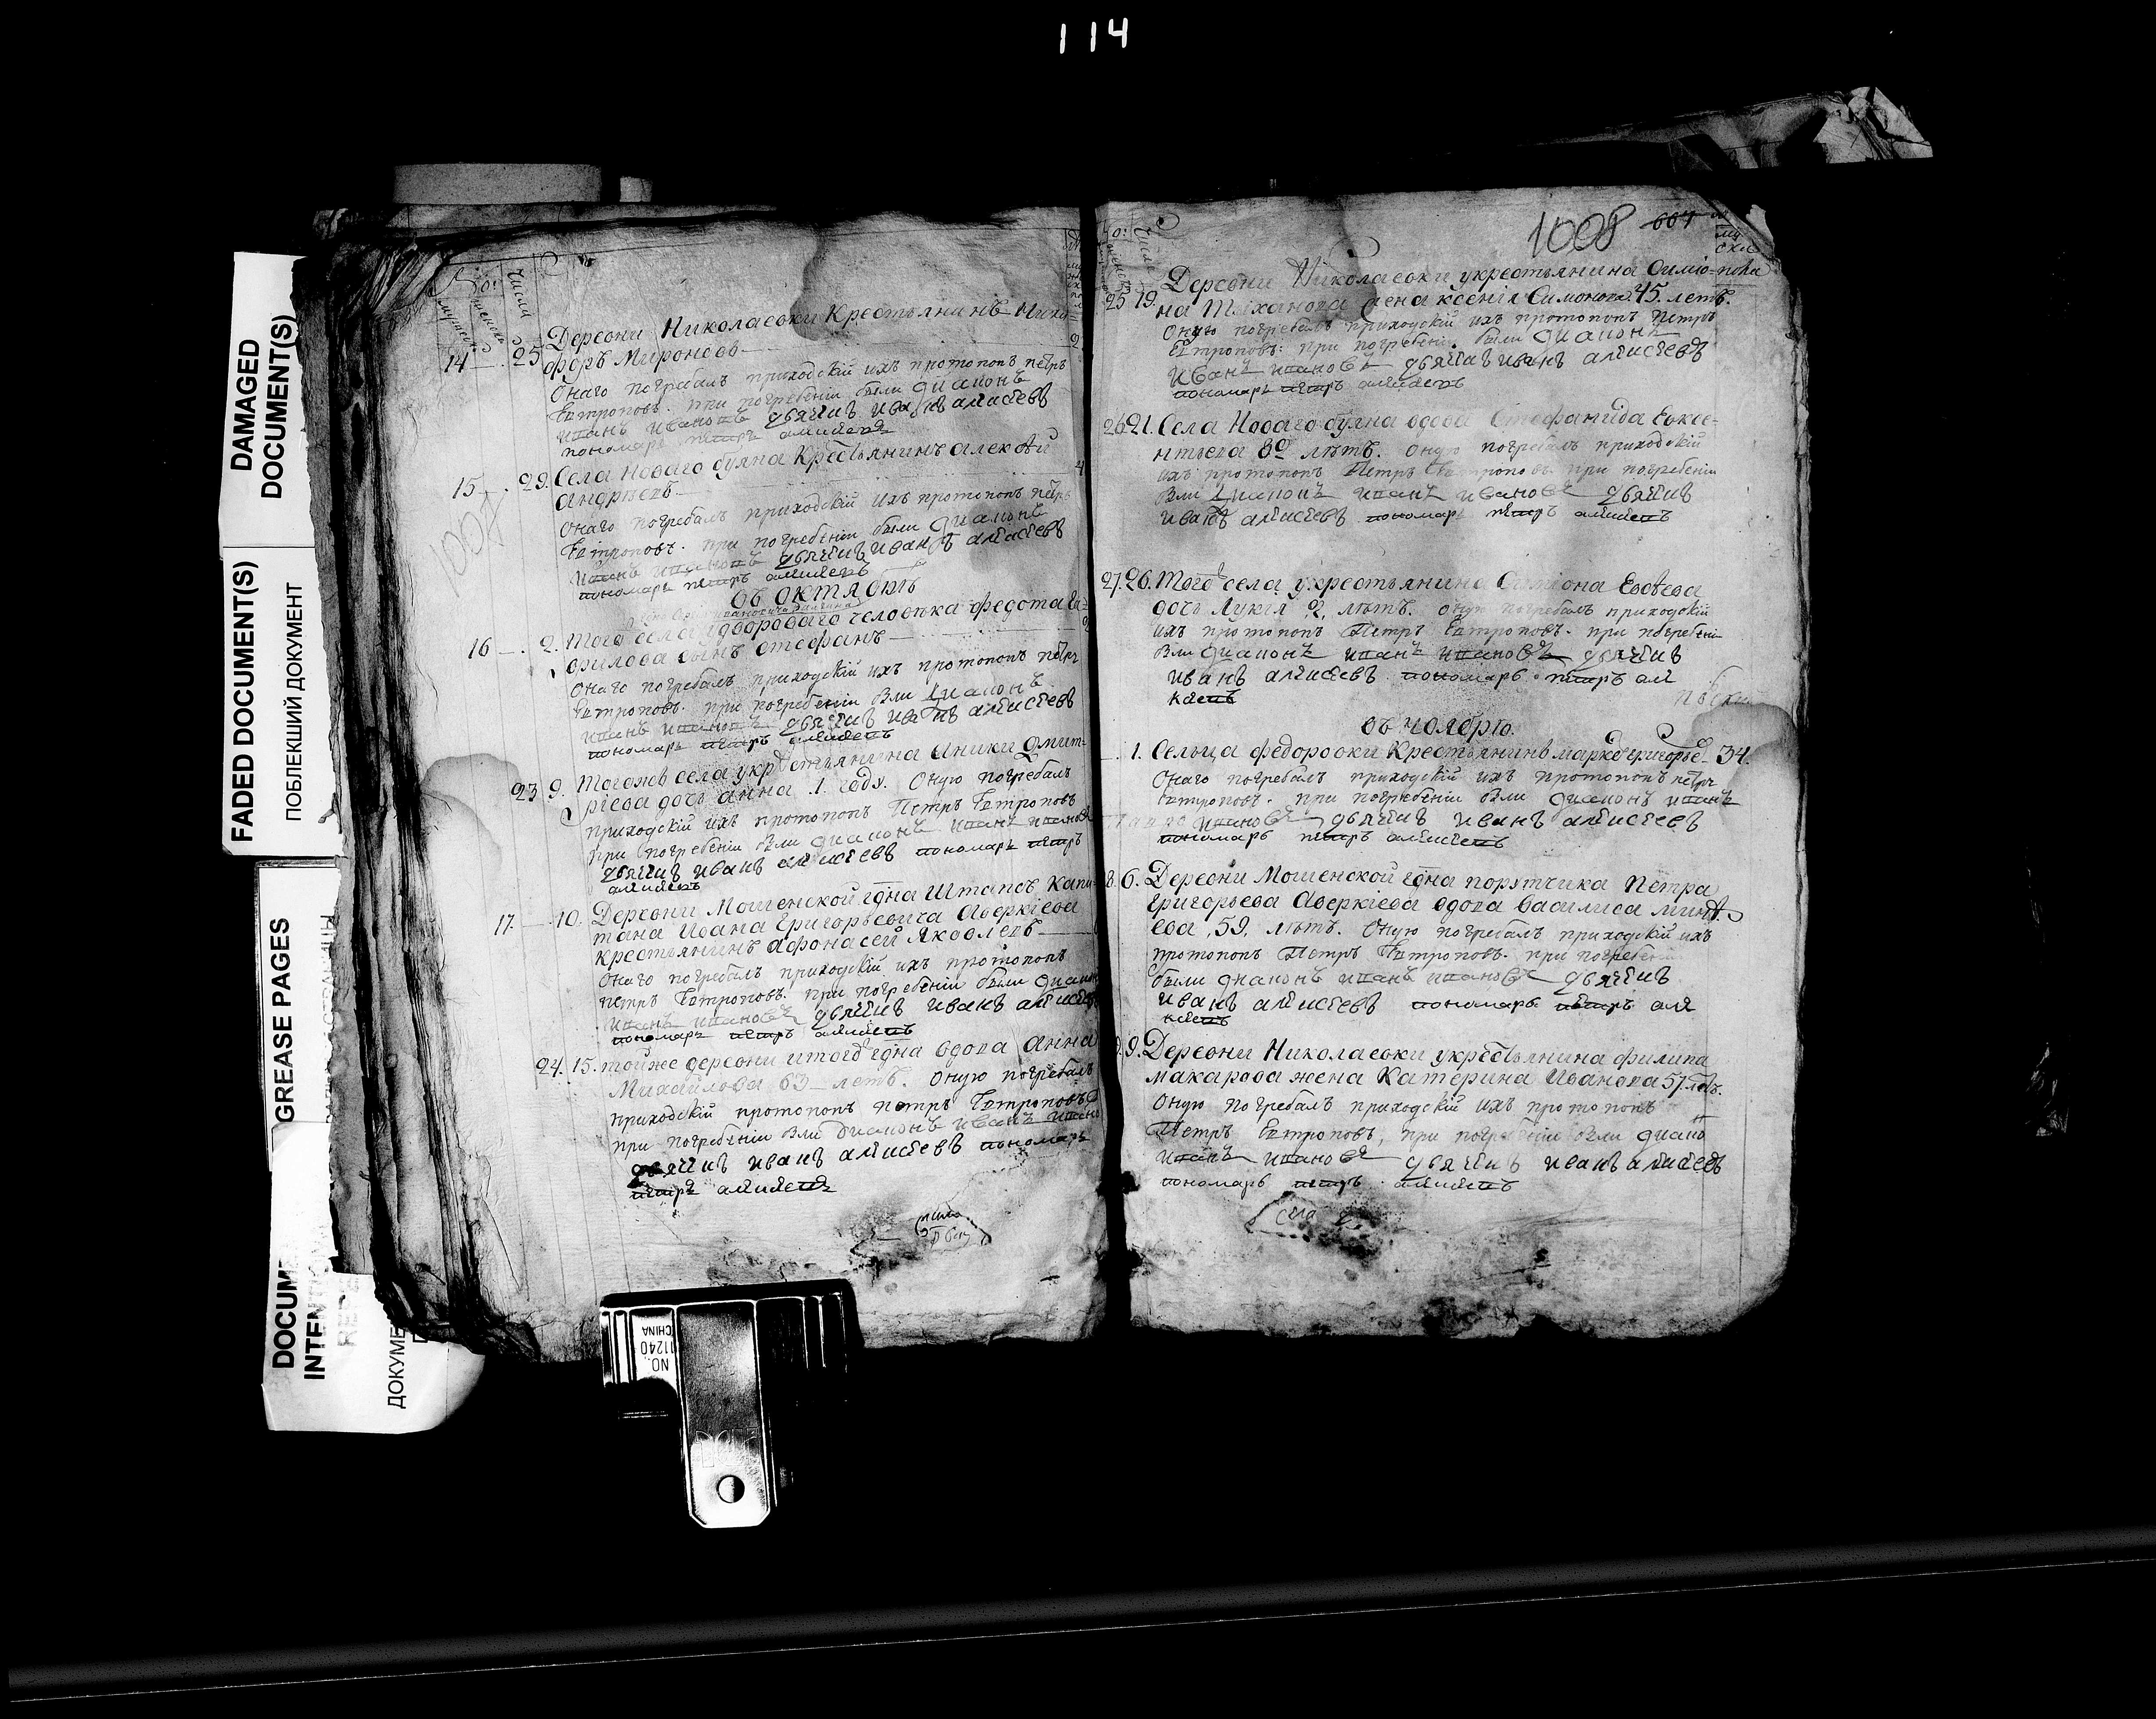 114
DAMAGED
DOCUMENT(S)
FADED DOCUMENT(S)
ПОБЛЕКШИЙ ДОКУМЕНТ
GREASE PAGES
DOCUM
INTEN
ДОКУМЕ
NO. 11240
CHINA
числа
14 25 Деревни Николаевки Крестьянинъ Ники-
форъ Миронов
Онаго погребалъ приходскій ихъ протопопъ петръ
Евтроповъ. при погребеніи были диаконъ
иванъ ивановъ дьячекъ иванъ алексеевъ
пономарь петръ алексеевъ
15 29. Села Новаго буяна Крестьянинъ алексѣй
андрѣевъ
Онаго погребалъ приходскій ихъ протопопъ петръ
Евтроповъ. при погребеніи были диаконъ
иванъ ивановъ дьячекъ иванъ алексеевъ
пономарь петръ алексеевъ
въ октябрѣ
16 2. Того села дворового человека федота
филова сынъ стефанъ
Онаго погребалъ приходскій ихъ протопопъ петръ
Евтроповъ. при погребеніи были диаконъ
иванъ ивановъ дьячекъ иванъ алексеевъ
пономарь петръ алексеевъ
23 9. Тогожъ села укрестьянина аники дмит-
риева дочь анна 1. году. Оную погребалъ
приходскій ихъ протопопъ Петръ Евтроповъ
при погребеніи были диаконъ иванъ ивановъ
дьячекъ иванъ алексеевъ пономарь петръ
алексеевъ
17. 10. Деревни Мошенской гдна Штапсъ Капи-
тана Ивана Григорьевича Аверкіева
крестьянинъ афонасей Яковлевъ
Онаго погребалъ приходскій ихъ протопопъ
петръ Евтроповъ. при погребеніи были диаконъ
иванъ ивановъ дьячекъ иванъ алексеевъ
пономарь петръ алексеевъ
24. 15. тойже деревни итогожъ гдна вдова анна
Михайлова 63 летъ. Оную погребалъ
приходскій протопопъ петръ Евтроповъ
при погребеніи были диаконъ иванъ ивановъ
дьячекъ иванъ алексеевъ пономарь
петръ алексеевъ
1008 607
числа
25 19. Деревни Николаевки укрестьянина Симіо-
на Тиханова жена ксенія Симонова 45. летъ.
Оную погребалъ приходскій ихъ протопопъ петръ
Евтроповъ: при погребеніи были диаконъ
иванъ ивановъ дьячекъ иванъ алексеевъ
пономарь петръ алексеевъ
26 21. Села Новаго буяна вдова Стефанида Евксе-
нтьева 80 лѣтъ. Оную погребалъ приходскій
ихъ протопопъ Петръ Евтроповъ при погребеніи
были диаконъ иванъ ивановъ дьячекъ
иванъ алексеевъ пономарь петръ алексеевъ
27. 26. Тогожъ села укрестьянина Симіона Евсѣева
дочь Лукія 2. лѣтъ. Оную погребалъ приходскій
ихъ протопопъ Петръ Евтроповъ. при погребеніи
были диаконъ иванъ ивановъ дьячекъ
иванъ алексеевъ. пономарь петръ але
ксеевъ
въ ноябрѣ.
1. Сельца федоровки Крестьянинъ марко григорье 34.
Онаго погребалъ приходскій ихъ протопопъ петръ
Евтроповъ. при погребеніи были диаконъ иванъ
ивановъ дьячекъ иванъ алексеевъ
пономарь петръ алексеевъ
8. 6. Деревни Мошенской гдна порутчика Петра
григорьева Аверкіева вдова василиса минѣ-
ева, 59. лѣтъ. Оную погребалъ приходскій ихъ
протопопъ Петръ Евтроповъ. при погребеніи
были диаконъ иванъ ивановъ дьячекъ
иванъ алексеевъ пономарь петръ але
ксеевъ
9. Деревни Николаевки укрестьянина филипа
макарова жена Катерина Иванова 57. летъ.
Оную погребалъ приходскій ихъ протопопъ
Петръ Евтроповъ, при погребеніи были диаконъ
иванъ ивановъ дьячекъ иванъ алексеевъ
пономарь петръ алексеевъ
села